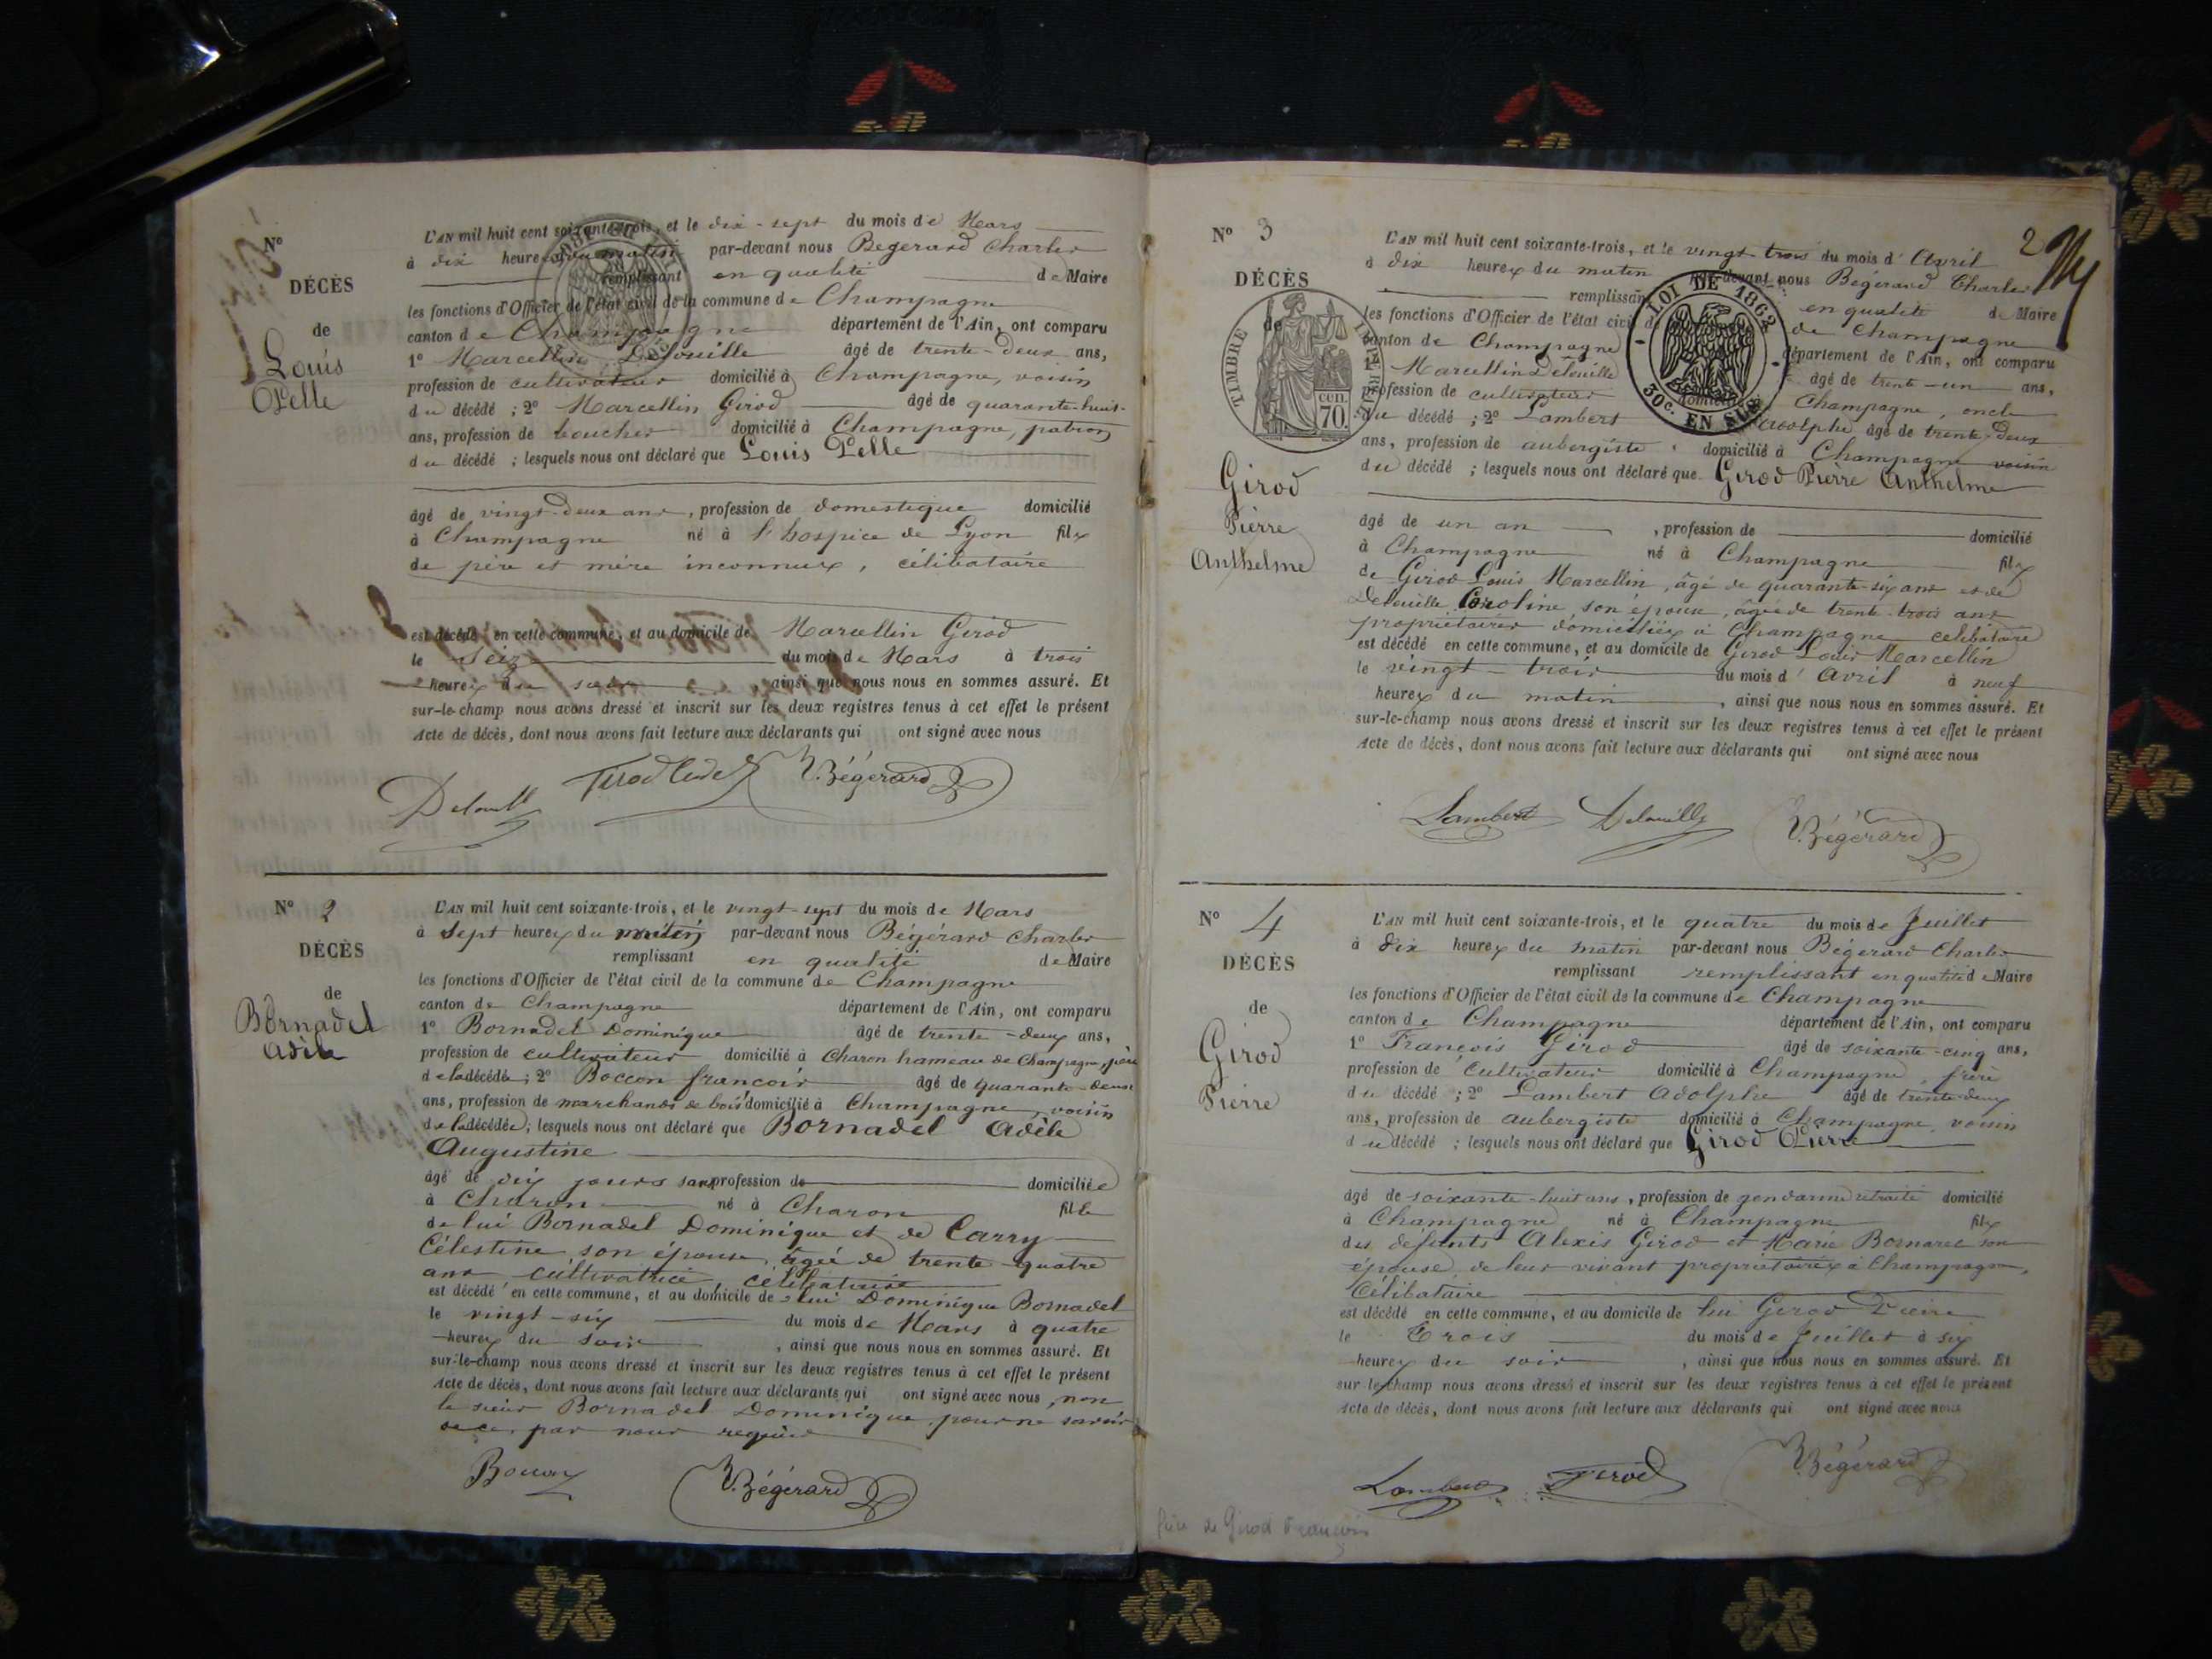 N°
DÉCÈS
de
Louis
Pelle
L'AN mil huit cent soixante-trois, et le dix-sept du mois de Mars
à dix heures du matin par-devant nous Bégérard Charles
remplissant en qualité de Maire
les fonctions d'Officier de l'état civil de la commune de Champagne
canton de Champagne département de l'Ain, ont comparu
1° Marcellin Delouille âgé de trente-deux ans,
profession de cultivateur domicilié à Champagne, voisin
du décédé ; 2° Marcellin Girod âgé de quarante-huit
ans, profession de boucher domicilié à Champagne, patron
du décédé ; lesquels nous ont déclaré que Louis Pelle
âgé de vingt-deux ans, profession de domestique domicilié
à Champagne né à l'hospice de Lyon fils
de père et mère inconnus, célibataire
est décédé en cette commune, et au domicile de Marcellin Girod
le seize du mois de Mars à trois
heures du soir, ainsi que nous nous en sommes assuré. Et
sur-le-champ nous avons dressé et inscrit sur les deux registres tenus à cet effet le présent
Acte de décès, dont nous avons fait lecture aux déclarants qui ont signé avec nous
Delouille Bégérard
N° 2
DÉCÈS
de
Bornadel
Adèle
L'AN mil huit cent soixante-trois, et le vingt-sept du mois de Mars
à sept heures du matin par-devant nous Bégérard Charles
remplissant en qualité de Maire
les fonctions d'Officier de l'état civil de la commune de Champagne
canton de Champagne département de l'Ain, ont comparu
1° Bornadel Dominique âgé de trente-deux ans,
profession de cultivateur domicilié à Charon hameau de Champagne, père
de la décédée ; 2° Boccon françois âgé de quarante-deux
ans, profession de marchands de bois domicilié à Champagne, voisin
de la décédée ; lesquels nous ont déclaré que Bornadel Adèle
Augustine
âgé de dix jours sans profession de domiciliée
à Charon né à Charon fille
de lui Bornadel Dominique et de Carry
Célestine son épouse, âgée de trente-quatre
ans cultivatrice, célibataire
est décédé en cette commune, et au domicile de lui Dominique Bornadel
le vingt-six du mois de Mars à quatre
heures du soir, ainsi que nous nous en sommes assuré. Et
sur-le-champ nous avons dressé et inscrit sur les deux registres tenus à cet effet le présent
Acte de décès, dont nous avons fait lecture aux déclarants qui ont signé avec nous, non
le sieur Bornadel Dominique pour ne savoir
de ce par nous requis
Boccon Bégérard
2
N° 3
DÉCÈS
de
TIMBRE IMPÉRIAL
CEN. 70.
Girod
Pierre
Anthelme
LOI DE 1862
30c. EN SUS
L'AN mil huit cent soixante-trois, et le vingt trois du mois d'Avril
à dix heures du matin par-devant nous Bégérard Charles
remplissant en qualité de Maire
les fonctions d'Officier de l'état civil de Champagne
canton de Champagne département de l'Ain, ont comparu
Marcellin Delouille âgé de trente-un ans,
profession de cultivateur domicilié Champagne, oncle
du décédé ; 2° Lambert Adolphe âgé de trente-deux
ans, profession de aubergiste domicilié à Champagne voisin
du décédé ; lesquels nous ont déclaré que Girod Pierre Anthelme
âgé de un an, profession de domicilié
à Champagne né à Champagne fils
de Girod Louis Marcellin, âgé de quarante-six ans et de
Delouille Caroline, son épouse, âgée de trente-trois ans
propriétaires domiciliés à Champagne célibataire
est décédé en cette commune, et au domicile de Girod Louis Marcellin
le vingt-trois du mois d'Avril à neuf
heures du matin, ainsi que nous nous en sommes assuré. Et
sur-le-champ nous avons dressé et inscrit sur les deux registres tenus à cet effet le présent
Acte de décès, dont nous avons fait lecture aux déclarants qui ont signé avec nous
Lambert Delouille Bégérard
N° 4
DÉCÈS
de
Girod
Pierre
L'AN mil huit cent soixante-trois, et le quatre du mois de Juillet
à dix heures du matin par-devant nous Bégérard Charles
remplissant remplissant en qualité de Maire
les fonctions d'Officier de l'état civil de la commune de Champagne
canton de Champagne département de l'Ain, ont comparu
1° François Girod âgé de soixante-cinq ans,
profession de Cultivateur domicilié à Champagne, frère
du décédé ; 2° Lambert Adolphe âgé de trente-deux
ans, profession de aubergiste domicilié à Champagne, voisin
du décédé ; lesquels nous ont déclaré que Girod Pierre
âgé de soixante-huit ans, profession de gendarme retraité domicilié
à Champagne né à Champagne fils
des défunts Alexis Girod et Marie Bornarel son
épouse, de leur vivant propriétaires à Champagne,
Célibataire
est décédé en cette commune, et au domicile de lui Girod Pierre
le Trois du mois de Juillet à six
heures du soir, ainsi que nous nous en sommes assuré. Et
sur-le-champ nous avons dressé et inscrit sur les deux registres tenus à cet effet le présent
Acte de décès, dont nous avons fait lecture aux déclarants qui ont signé avec nous
Lambert Girod Bégérard
frère de Girod François